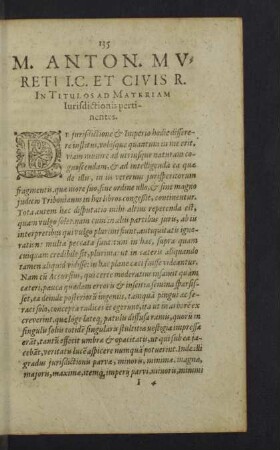 135
M. ANTON. MV-
RETI I.C. ET CIVIS R.
IN TITVLOS AD MATERIAM
Iurisdictionis perti-
nentes.
DE iurisdictione & Imperio hodie dissere-
re instituo, vobisque quantum in me erit,
viam munire ad vtriusque naturam co-
gnoscendam, & ad intelligenda ea quæ
de illis, in iis veterum iurisperitorum
fragmentis, quæ more suo, sine ordine ullo, & sine magno
iudicio Tribonianus in hos libros congessit, continentur.
Tota autem hæc disputatio mihi altius repetenda est,
quàm vulgo solet. nam cum in aliis partibus iuris, ab iis
interpretibus qui vulgo plurimi fiunt, antiquitatis igno-
ratione multa peccata sunt, tum in hac, supra quàm
cuiquam credibile sit, plurima: ut in cæteris aliquando
tamen aliquid vidisse, in hac planè cæci fuisse videantur.
Nam cū Accursius, qui certe moderatius insanit quàm
cæteri, pauca quædam erroris & inscitiæ semina sparsis-
set, ea deinde posteriorū ingeniis, tanquā pingui ac fe-
raci solo, concepta radices ita egerunt, ita ut in arborē ex
creverint, quæ longe lateque patulis diffusa ramis, quorū in
singulis foliis totidē singularis stultitiæ vestigia impressa
erāt, tantū effecit umbræ & opacitatis, ut qui sub ea ia-
cebāt, veritatis lucē aspicere numquā potuerint. Inde illi
gradus iurisdictionis parvæ, minoris, minimæ, magnæ,
maioris, maximæ, itemque imperij parvi, minoris, minimi
I 4